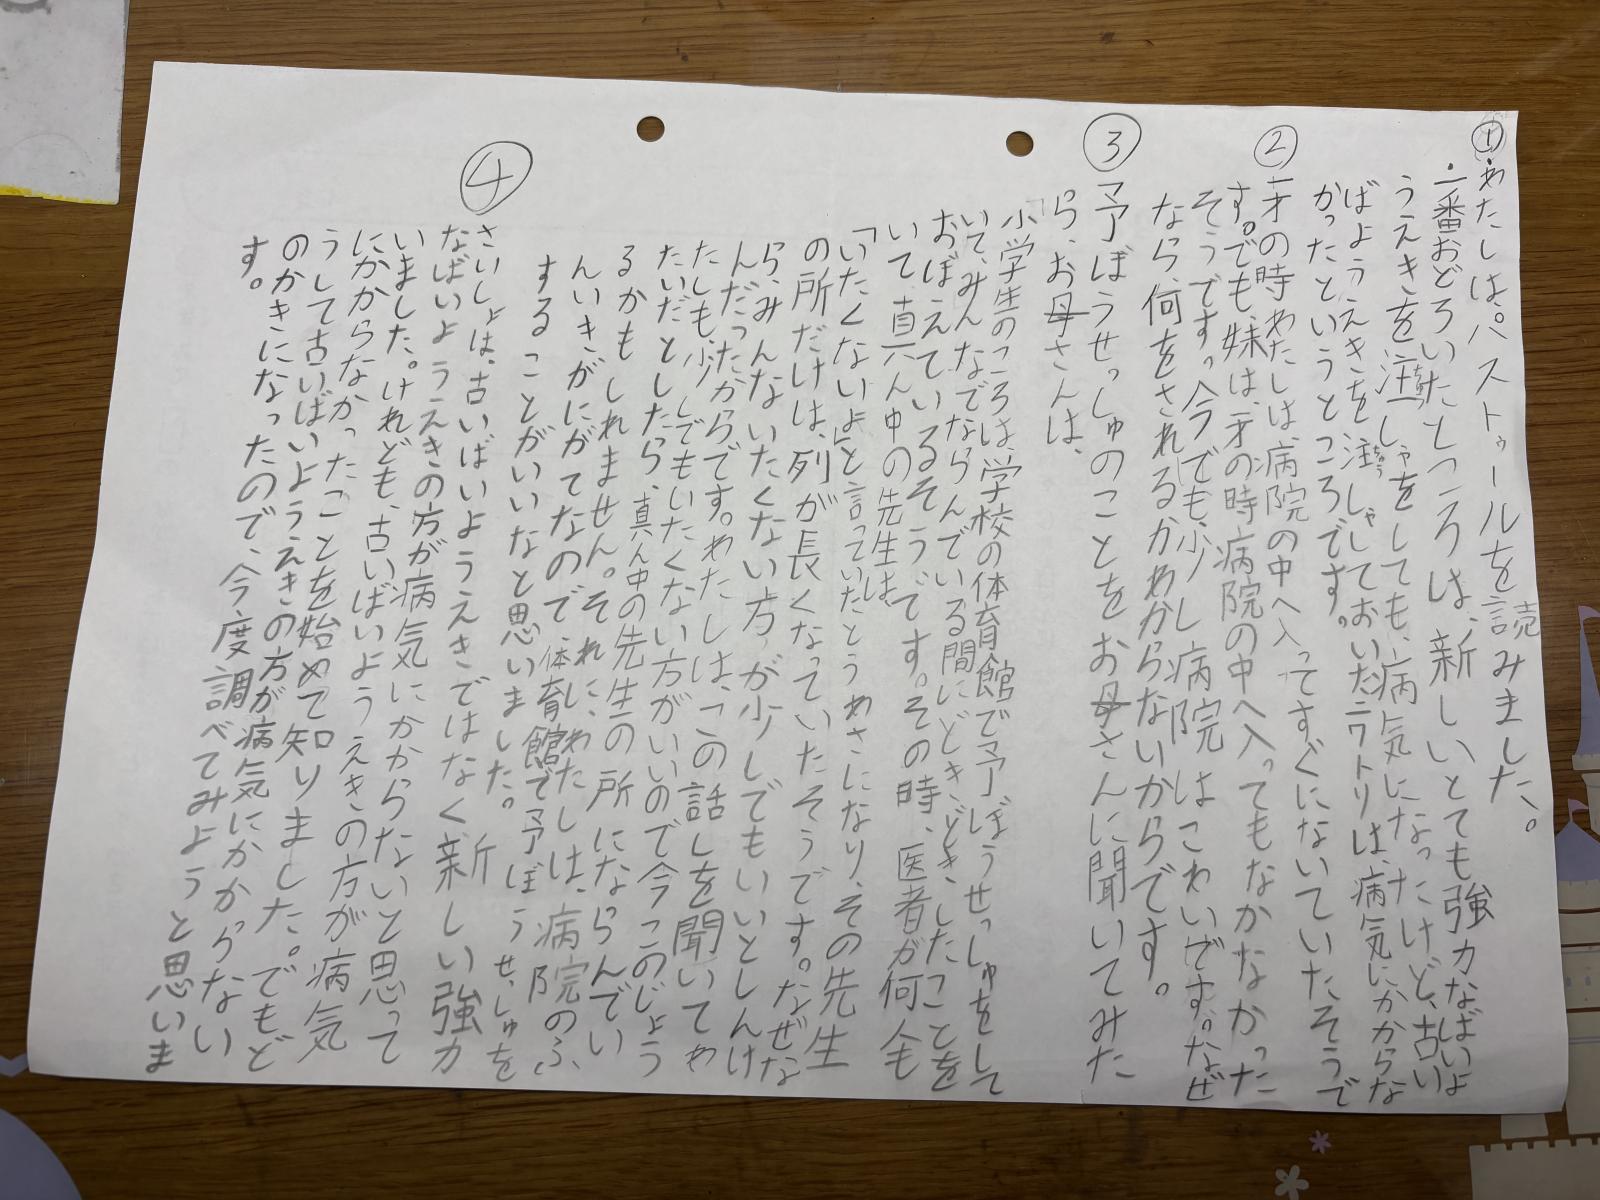 ①・わたしは、パストゥールを読みました。
・一番おどろいたところは、新しいとても強力なばいよ
うえきを注しゃをしても、病気になったけど、古い
ばようえきを注しゃしておいたニワトリは、病気にかからな
かったというところです。
②一才の時わたしは、病院の中へ入ってすぐにないていたそうで
す。でも、妹は、一才の時病院の中へ入ってもなかなかった
そうです。今でも、少し病院はこわいです。なぜ
なら、何をされるかわからないからです。
③予ぼうせっしゅのことをお母さんに聞いてみた
ら、お母さんは、
「小学生のころは、学校の体育館で予ぼうせっしゅをして
いて、みんなでならんでいる間にどきどきしたことを
おぼえているそうです。その時、医者が何人も
いて、真ん中の先生は、
「いたくないよ」と言っていたとうわさになり、その先生
の所だけは、列が長くなっていたそうです。なぜな
ら、みんないたくない方が少しでもいいとしんけ
んだったからです。わたしは、この話しを聞いてわ
たしも、少しでもいたくない方がいいので今このじょう
たいだとしたら、真ん中の先生の所にならんでい
るかもしれません。それに、わたしは、病院のふ
んいきがにがてなので、体育館で予ぼうせっしゅを
することがいいなと思いました。
④さいしょは、古いばいようえきではなく新しい強力
なばいようえきの方が病気にかからないと思って
いました。けれども、古いばいようえきの方が病気
にかからなかったことを始めて知りました。でもど
うして古いばいようえきの方が病気にかからない
のかきになったので、今度調べてみようと思いま
す。